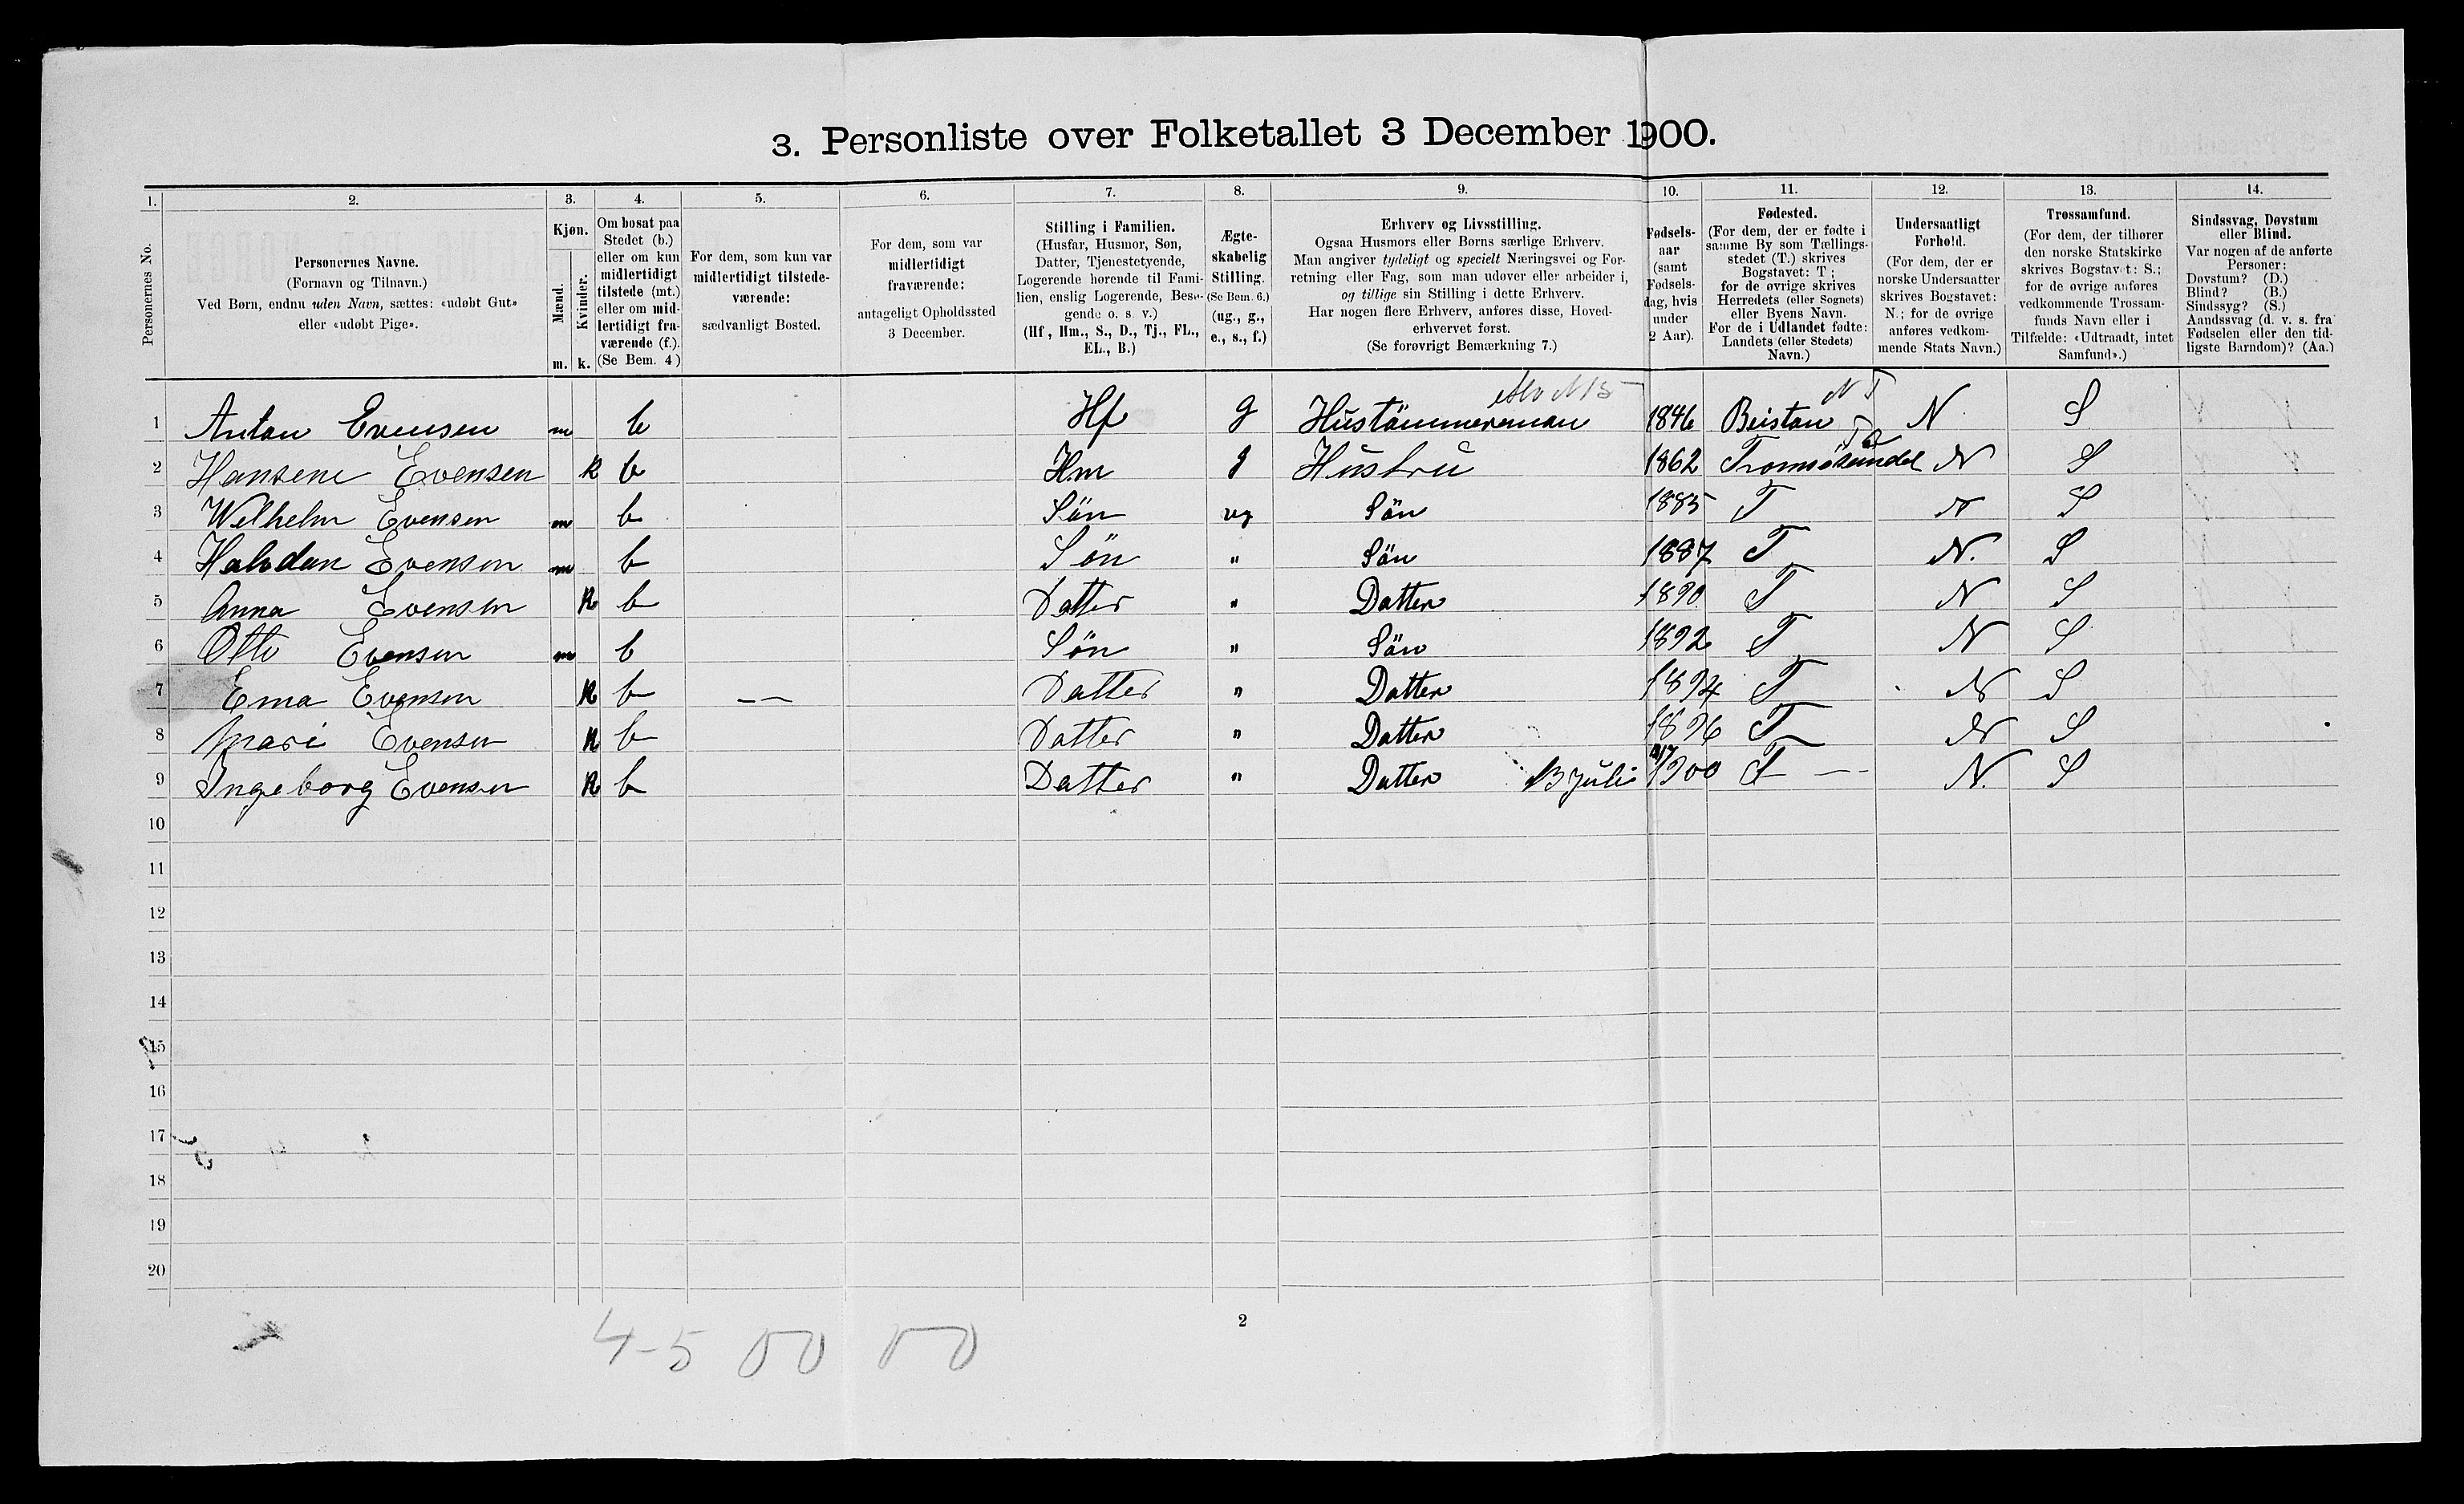 3. Personliste over Folketallet 3 December 1900.
1. 2. 3. 4. 5. 6. 7. 8. 9. 10. 11. 12. 13. 14.
Personernes No.
Personernes Navne.
(Fornavn og Tilnavn.)
Ved Børn, endnu uden Navn, sættes: «udøbt Gut»
eller «udøbt Pige».
Kjøn.
Mænd.
Kvinder.
m. k.
Om bosat paa
Stedet (b.)
eller om kun
midlertidigt
tilstede (mt.)
eller om mid-
lertidigt fra-
værende (f.).
(Se Bem. 4)
For dem, som kun var
midlertidigt tilstede-
værende:
sædvanligt Bosted.
For dem, som var
midlertidigt
fraværende:
antageligt Opholdssted
3 December.
Stilling i Familien.
(Husfar, Husmor, Søn,
Datter, Tjenestetyende,
Logerende hørende til Fami-
lien, enslig Logerende, Besø-
gende o. s. v.)
(Hf, Hm., S., D., Tj., FL.,
EL., B.)
Ægte-
skabelig
Stilling.
(Se Bem. 6.)
(ug., g.,
e., s., f.)
Erhverv og Livsstilling.
Ogsaa Husmors eller Børns særlige Erhverv.
Man angiver tydeligt og specielt Næringsvei og For-
retning eller Fag, som man udøver eller arbeider i,
og tillige sin Stilling i dette Erhverv.
Har nogen flere Erhverv, anføres disse, Hoved-
erhvervet først.
(Se forøvrigt Bemærkning 7.)
Fødsels-
aar
(samt
Fødsels-
dag, hvis
under
2 Aar).
Fødested.
(For dem, der er fødte i
samme By som Tællings-
stedet (T.) skrives
Bogstavet: T;
for de øvrige skrives
Herredets (eller Sognets)
eller Byens Navn.
For de i Udlandet fødte:
Landets (eller Stedets)
Navn.)
Undersaatligt
Forhold.
(For dem, der er
norske Undersaatter
skrives Bogstavet:
N.; for de øvrige
anføres vedkom-
mende Stats Navn.)
Trossamfund.
(For dem, der tilhører
den norske Statskirke
skrives Bogstavet: S.;
for de øvrige anføres
vedkommende Trossam-
funds Navn eller i
Tilfælde: «Udtraadt, intet
Samfund».)
Sindssvag, Døvstum
eller Blind.
Var nogen af de anførte
Personer:
Døvstum? (D.)
Blind? (B.)
Sindssyg? (S.)
Aandssvag (d. v. s. fra
Fødselen eller den tid-
ligste Barndom)? (Aa.)
N T
1 Anton Evensen m b Hf g Hustömmereman 1846 Beistan N S
2 Hansene Evensen k b Hm g Hustru 1862 Tromsøsundet N S
3 Wilhelm Evensen m b Sön ug Sön 1885 T N S
4 Halvdan Evensen m b Sön " Sön 1887 T N. S
5 Anna Evensen k b Datter " Datter 1890 T N S
6 Otto Evensen m b Sön " Sön 1892 T N S
7 Ema Evensen k b — Datter " Datter 1894 T N S
8 Mari Evensen k b Datter " Datter 1896 T N S
9 Ingeborg Evensen k b Datter " Datter 13 Juli 1900 T — N. S
10
11
12
13
14
15
16
17
18
19
20
2
4-5 00 00